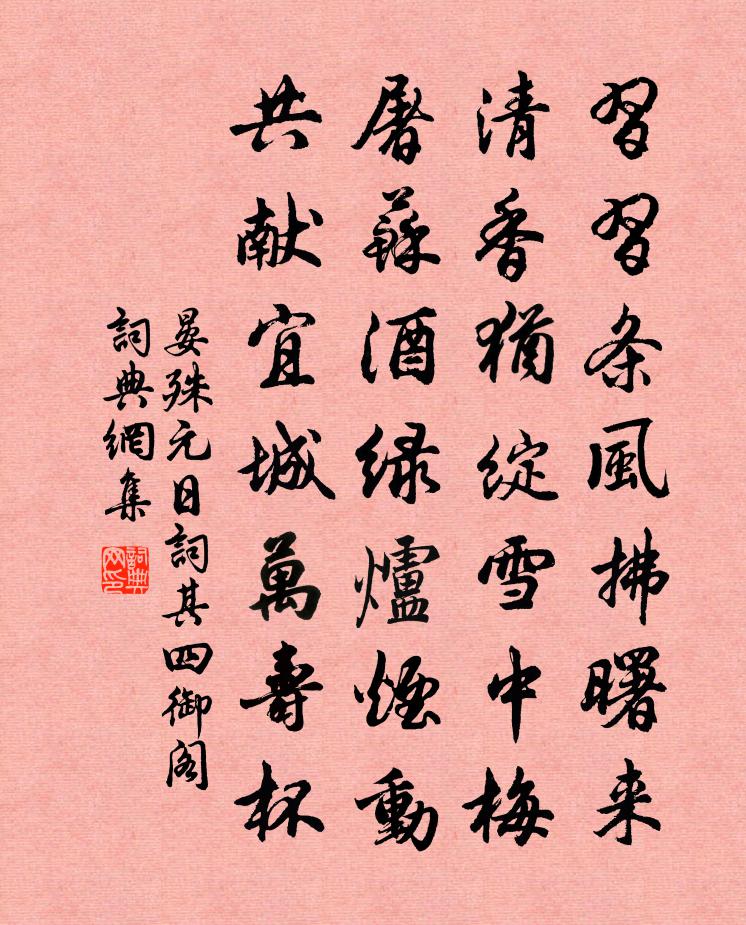 習習条風拂曙来
清香猶綻雪中梅
屠蘇酒緑爐煙動
共献宜城萬壽杯
晏殊元日詞其四御阁
詞典網集
詞典网印